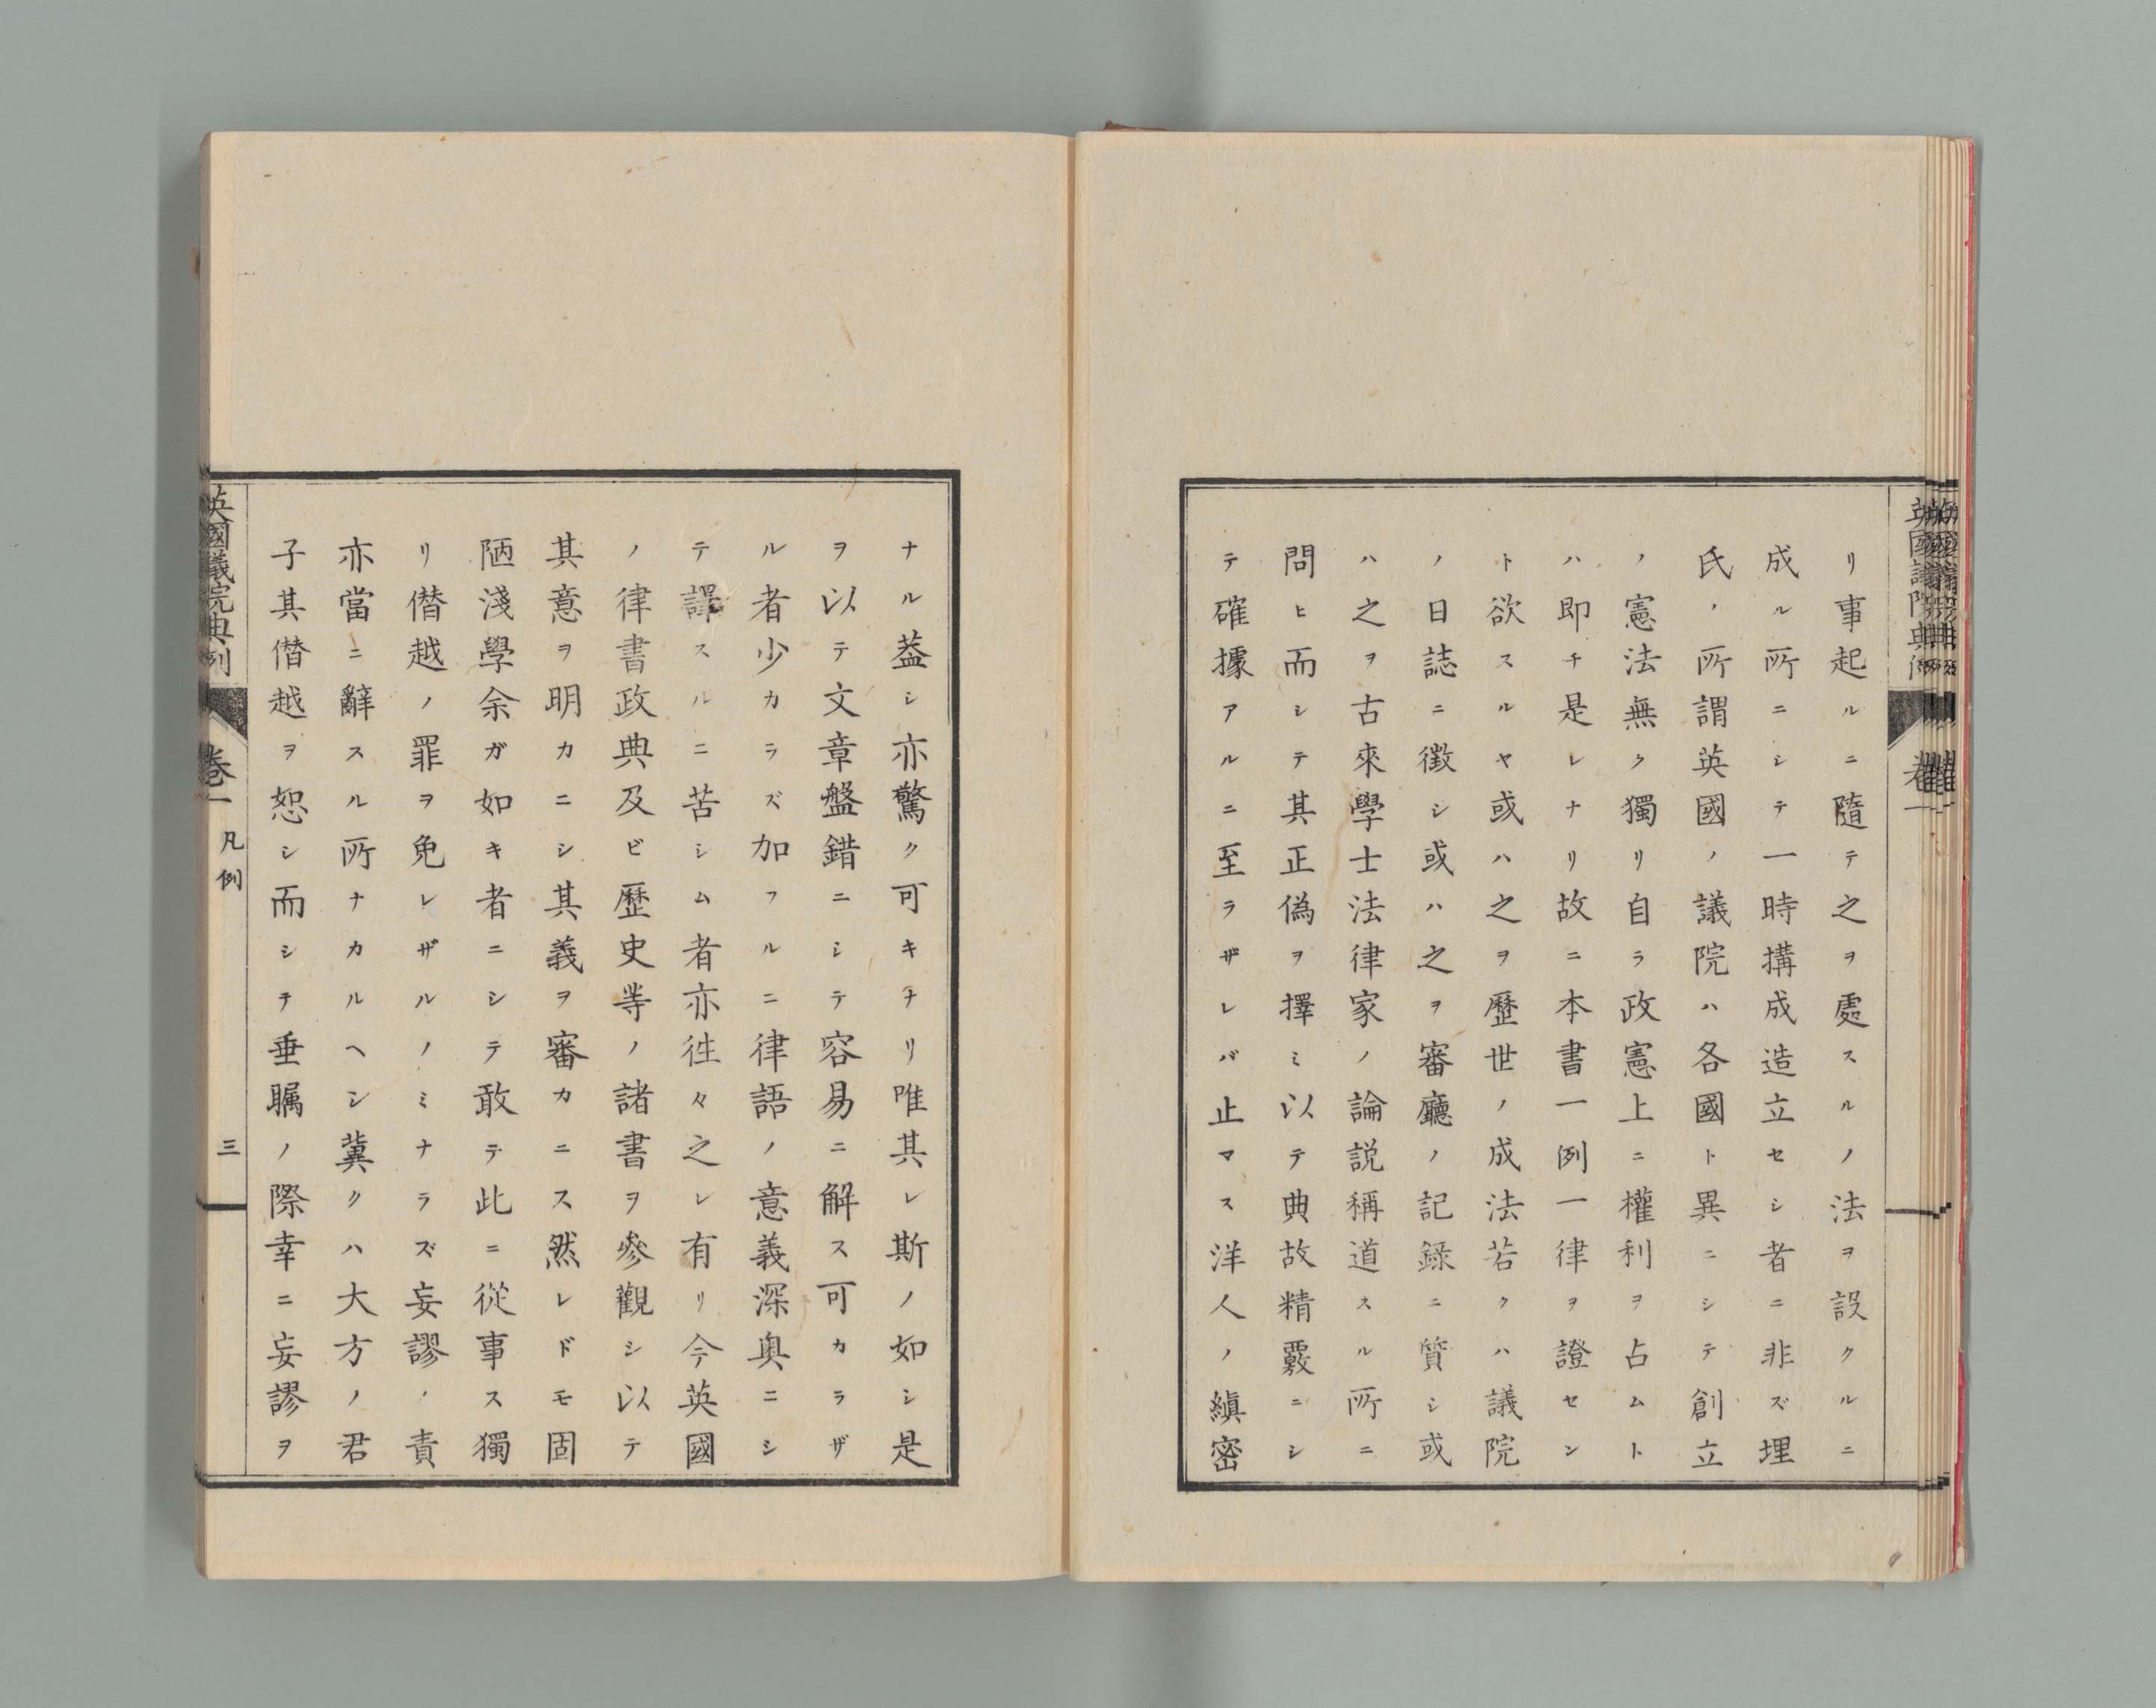 リ事起ルニ隨テ之ヲ處スルノ法ヲ設クルニ
成ル所ニシテ一時搆成造立セシ者ニ非ズ埋
氏ノ所謂英國ノ議院ハ各國ト異ニシテ創立
ノ憲法無ク獨リ自ラ政憲上ニ權利ヲ占ムト
ハ即チ是レナリ故ニ本書一例一律ヲ證セン
ト欲スルヤ或ハ之ヲ歷世ノ成法若クハ議院
ノ日誌ニ徵シ或ハ之ヲ審廳ノ記錄ニ質シ或
ハ之ヲ古來學士法律家ノ論説稱道スル所ニ
問ヒ而シテ其正僞ヲ擇ミ以テ典故精覈ニシ
テ確據アルニ至ラザレバ止マス洋人ノ縝密
ナル葢シ亦驚ク可キナリ唯其レ斯ノ如シ是
ヲ以テ文章盤錯ニシテ容易ニ解ス可カラザ
ル者少カラズ加フルニ律語ノ意義深奥ニシ
テ譯スルニ苦シム者亦徃々之レ有リ今英國
ノ律書政典及ビ歷史等ノ諸書ヲ參觀シ以テ
其意ヲ明カニシ其義ヲ審カニス然レドモ固
陋淺學余ガ如キ者ニシテ敢テ此ニ從事ス獨
リ僭越ノ罪ヲ免レザルノミナラズ妄謬ノ責
亦當ニ辭スル所ナカルヘシ冀クハ大方ノ君
子其僭越ヲ恕シ而シテ垂矚ノ際幸ニ妄謬ヲ
英國議院典例 卷一 凡例 三